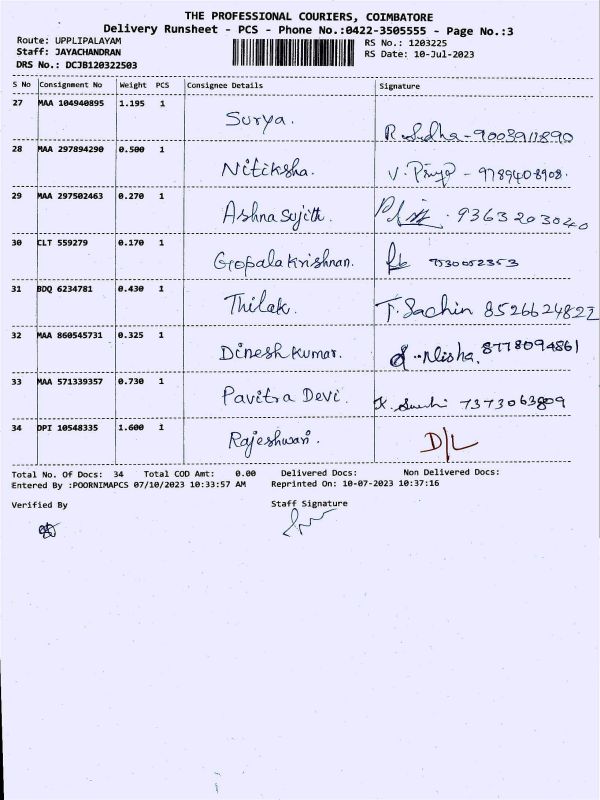 THE PROFESSIONAL COURIERS, COIMBATORE
Delivery Runsheet - PCS - Phone No.:0422-3505555 - Page No.:3
Route: UPPLIPALAYAM RS No.: 1203225
Staff: JAYACHANDRAN RS Date: 10-Jul-2023
DRS No.: DCJB120322503
S No Consignment No Weight PCS Consignee Details Signature
27 MAA 104940895 1.195 1 Surya. 
28 MAA 297894290 0.500 1 Nitiksha. V. Priya - 9789408908.
29 MAA 297502463 0.270 1 Ashna Sujith. 9363203040
30 CLT 559279 0.170 1 Gopala krishnan.
31 BDQ 6234781 0.430 1 Thilak. T. Sachin 8526624822
32 MAA 860545731 0.325 1 Dinesh kumar. Nisha. 8778094861
33 MAA 571339357 0.730 1 Pavitra Devi. K. 7373063809
34 DPI 10548335 1.600 1 Rajeshwari. D/L
Total No. Of Docs: 34 Total COD Amt: 0.00 Delivered Docs: Non Delivered Docs:
Entered By :POORNIMAPCS 07/10/2023 10:33:57 AM Reprinted On: 10-07-2023 10:37:16
Verified By Staff Signature